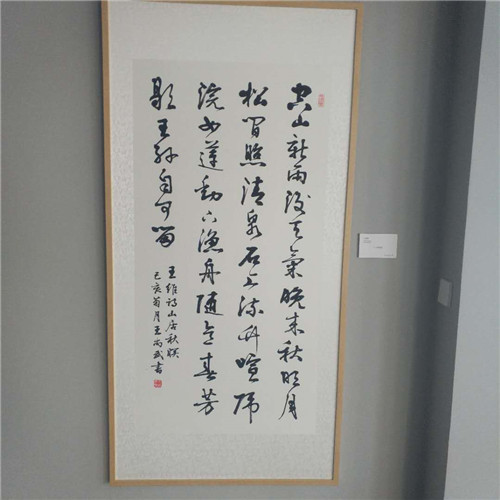 空山新雨後天氣晚来秋明月
松間照清泉石上流竹喧歸
浣女蓮動下漁舟隨意春芳
歇王孫自可留
王維诗山居秋暝
己亥菊月王尚武書